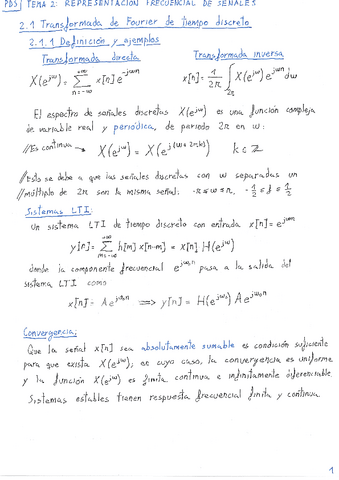 PDS | TEMA 2: REPRESENTACIÓN FRECUENCIAL DE SEÑALES
2.1 Transformada de Fourier de tiempo discreto
2.1.1 Definición y ejemplos
Transformada directa Transformada inversa
X(e^{jω}) = Σ_{n=-∞}^{+∞} x[n] e^{-jωn} x[n] = 1/2π ∫_{2π} X(e^{jω}) e^{jωn} dω
El espectro de señales discretas X(e^{jω}) es una función compleja
de variable real y periódica, de periodo 2π en ω:
//Es continua → X(e^{jω}) = X(e^{j(ω+2πk)}) k ∈ Z
//Esto se debe a que las señales discretas con ω separadas un
//múltiplo de 2π son la misma señal: -π ≤ ω ≤ π, -1/2 ≤ f ≤ 1/2
Sistemas LTI:
Un sistema LTI de tiempo discreto con entrada x[n] = e^{jωn}
y[n] = Σ_{m=-∞}^{+∞} h[m] x[n-m] = x[n] H(e^{jω})
donde la componente frecuencial e^{jω₀n} pasa a la salida del
sistema LTI como
x[n] = A e^{jω₀n} ⟹ y[n] = H(e^{jω₀}) A e^{jω₀n}
Convergencia:
Que la señal x[n] sea absolutamente sumable es condición suficiente
para que exista X(e^{jω}); en cuyo caso, la convergencia es uniforme
y la función X(e^{jω}) es finita continua e infinitamente diferenciable.
Sistemas estables tienen respuesta frecuencial finita y continua.
1